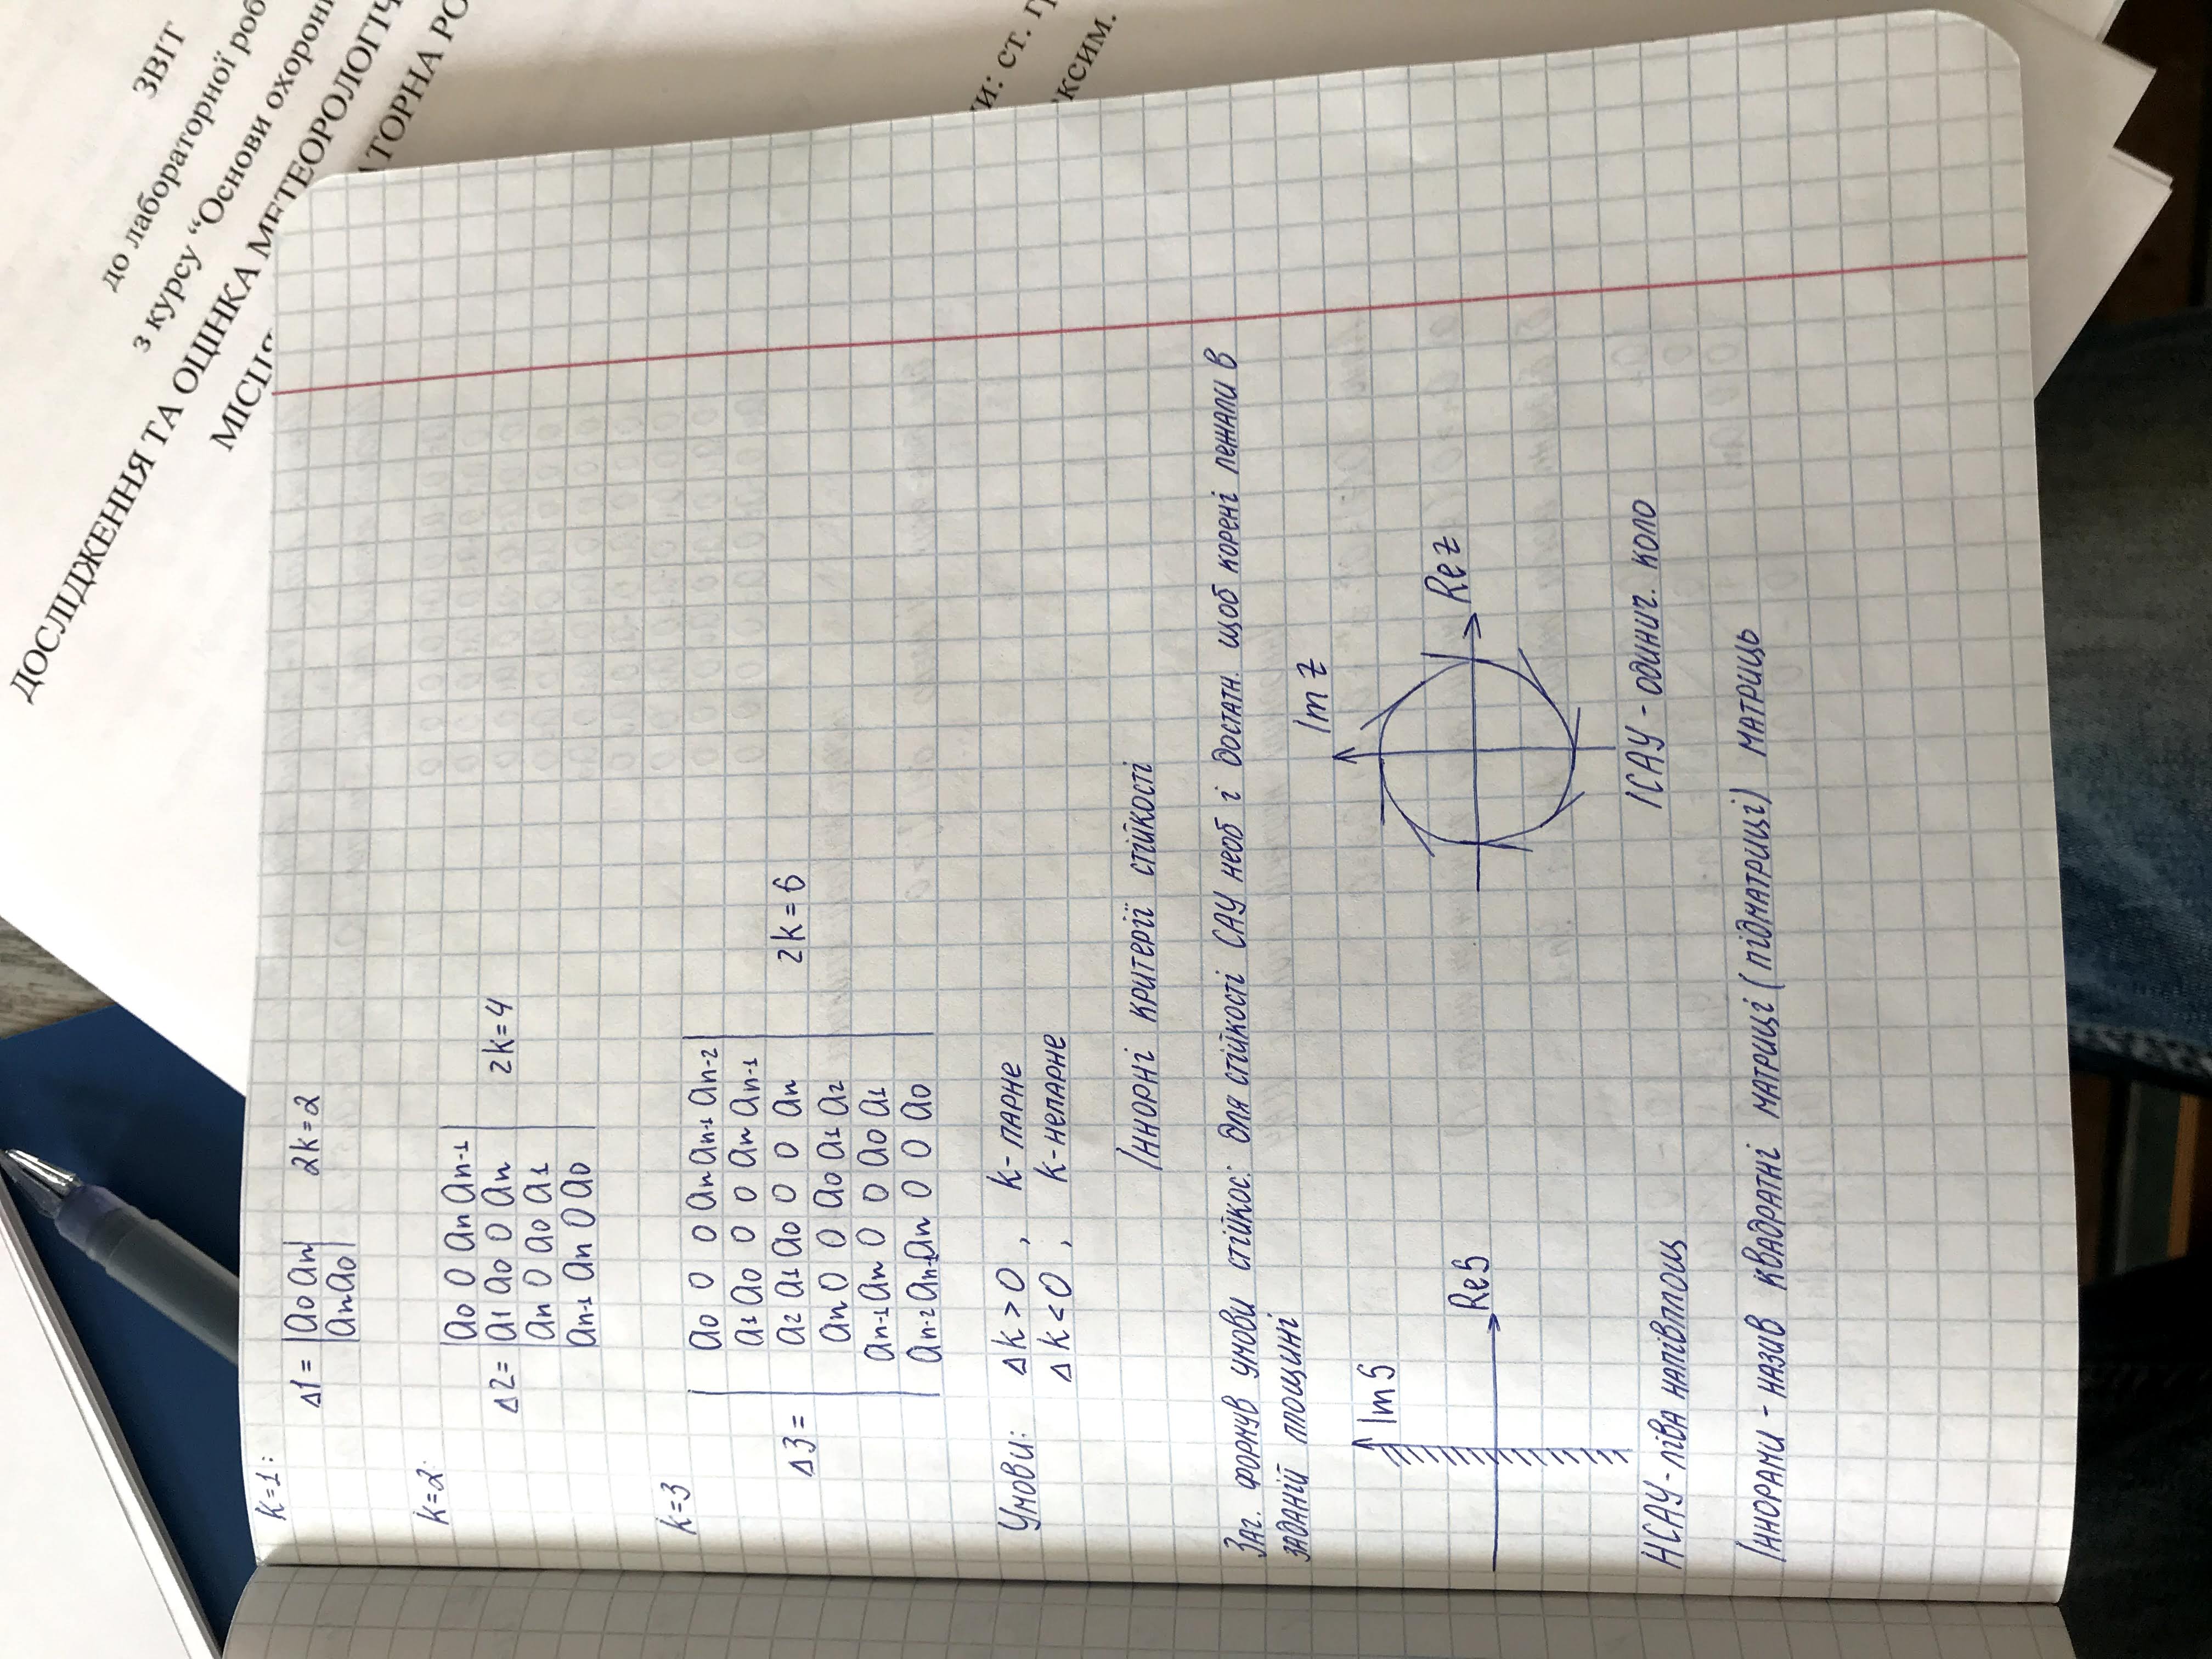 ЗВІТ
до лабораторної роб
з курсу “Основи охорони
ДОСЛІДЖЕННЯ ТА ОЦІНКА МЕТЕОРОЛОГІЧ
МІСЦЯ
ТОРНА РО
и: ст. г
ксим.
K=1:
Δ1= |a0 an| 2k=2
|an a0|
k=2:
|a0 0 an an-1|
Δ2= |a1 a0 0 an| 2k=4
|an 0 a0 a1|
|an-1 an 0 a0|
k=3
|a0 0 0 an an-1 an-2|
|a1 a0 0 0 an an-1|
Δ3= |a2 a1 a0 0 0 an| 2k=6
|an 0 0 a0 a1 a2|
|an-1 an 0 0 a0 a1|
|an-2 an-1 an 0 0 a0|
Умови: Δk>0, k-парне
Δk<0, k-непарне
Іннорні критерії стійкості
Заг. формув умови стійкос: для стійкості САУ необ і достатн. щоб корені лежали в
заданій площині
Im S
Re S
Im z
Re z
НСАУ-ліва напівплощ
ІСАУ-одинич. коло
Іннорами - назив квадратні матриці (підматриці) матриць